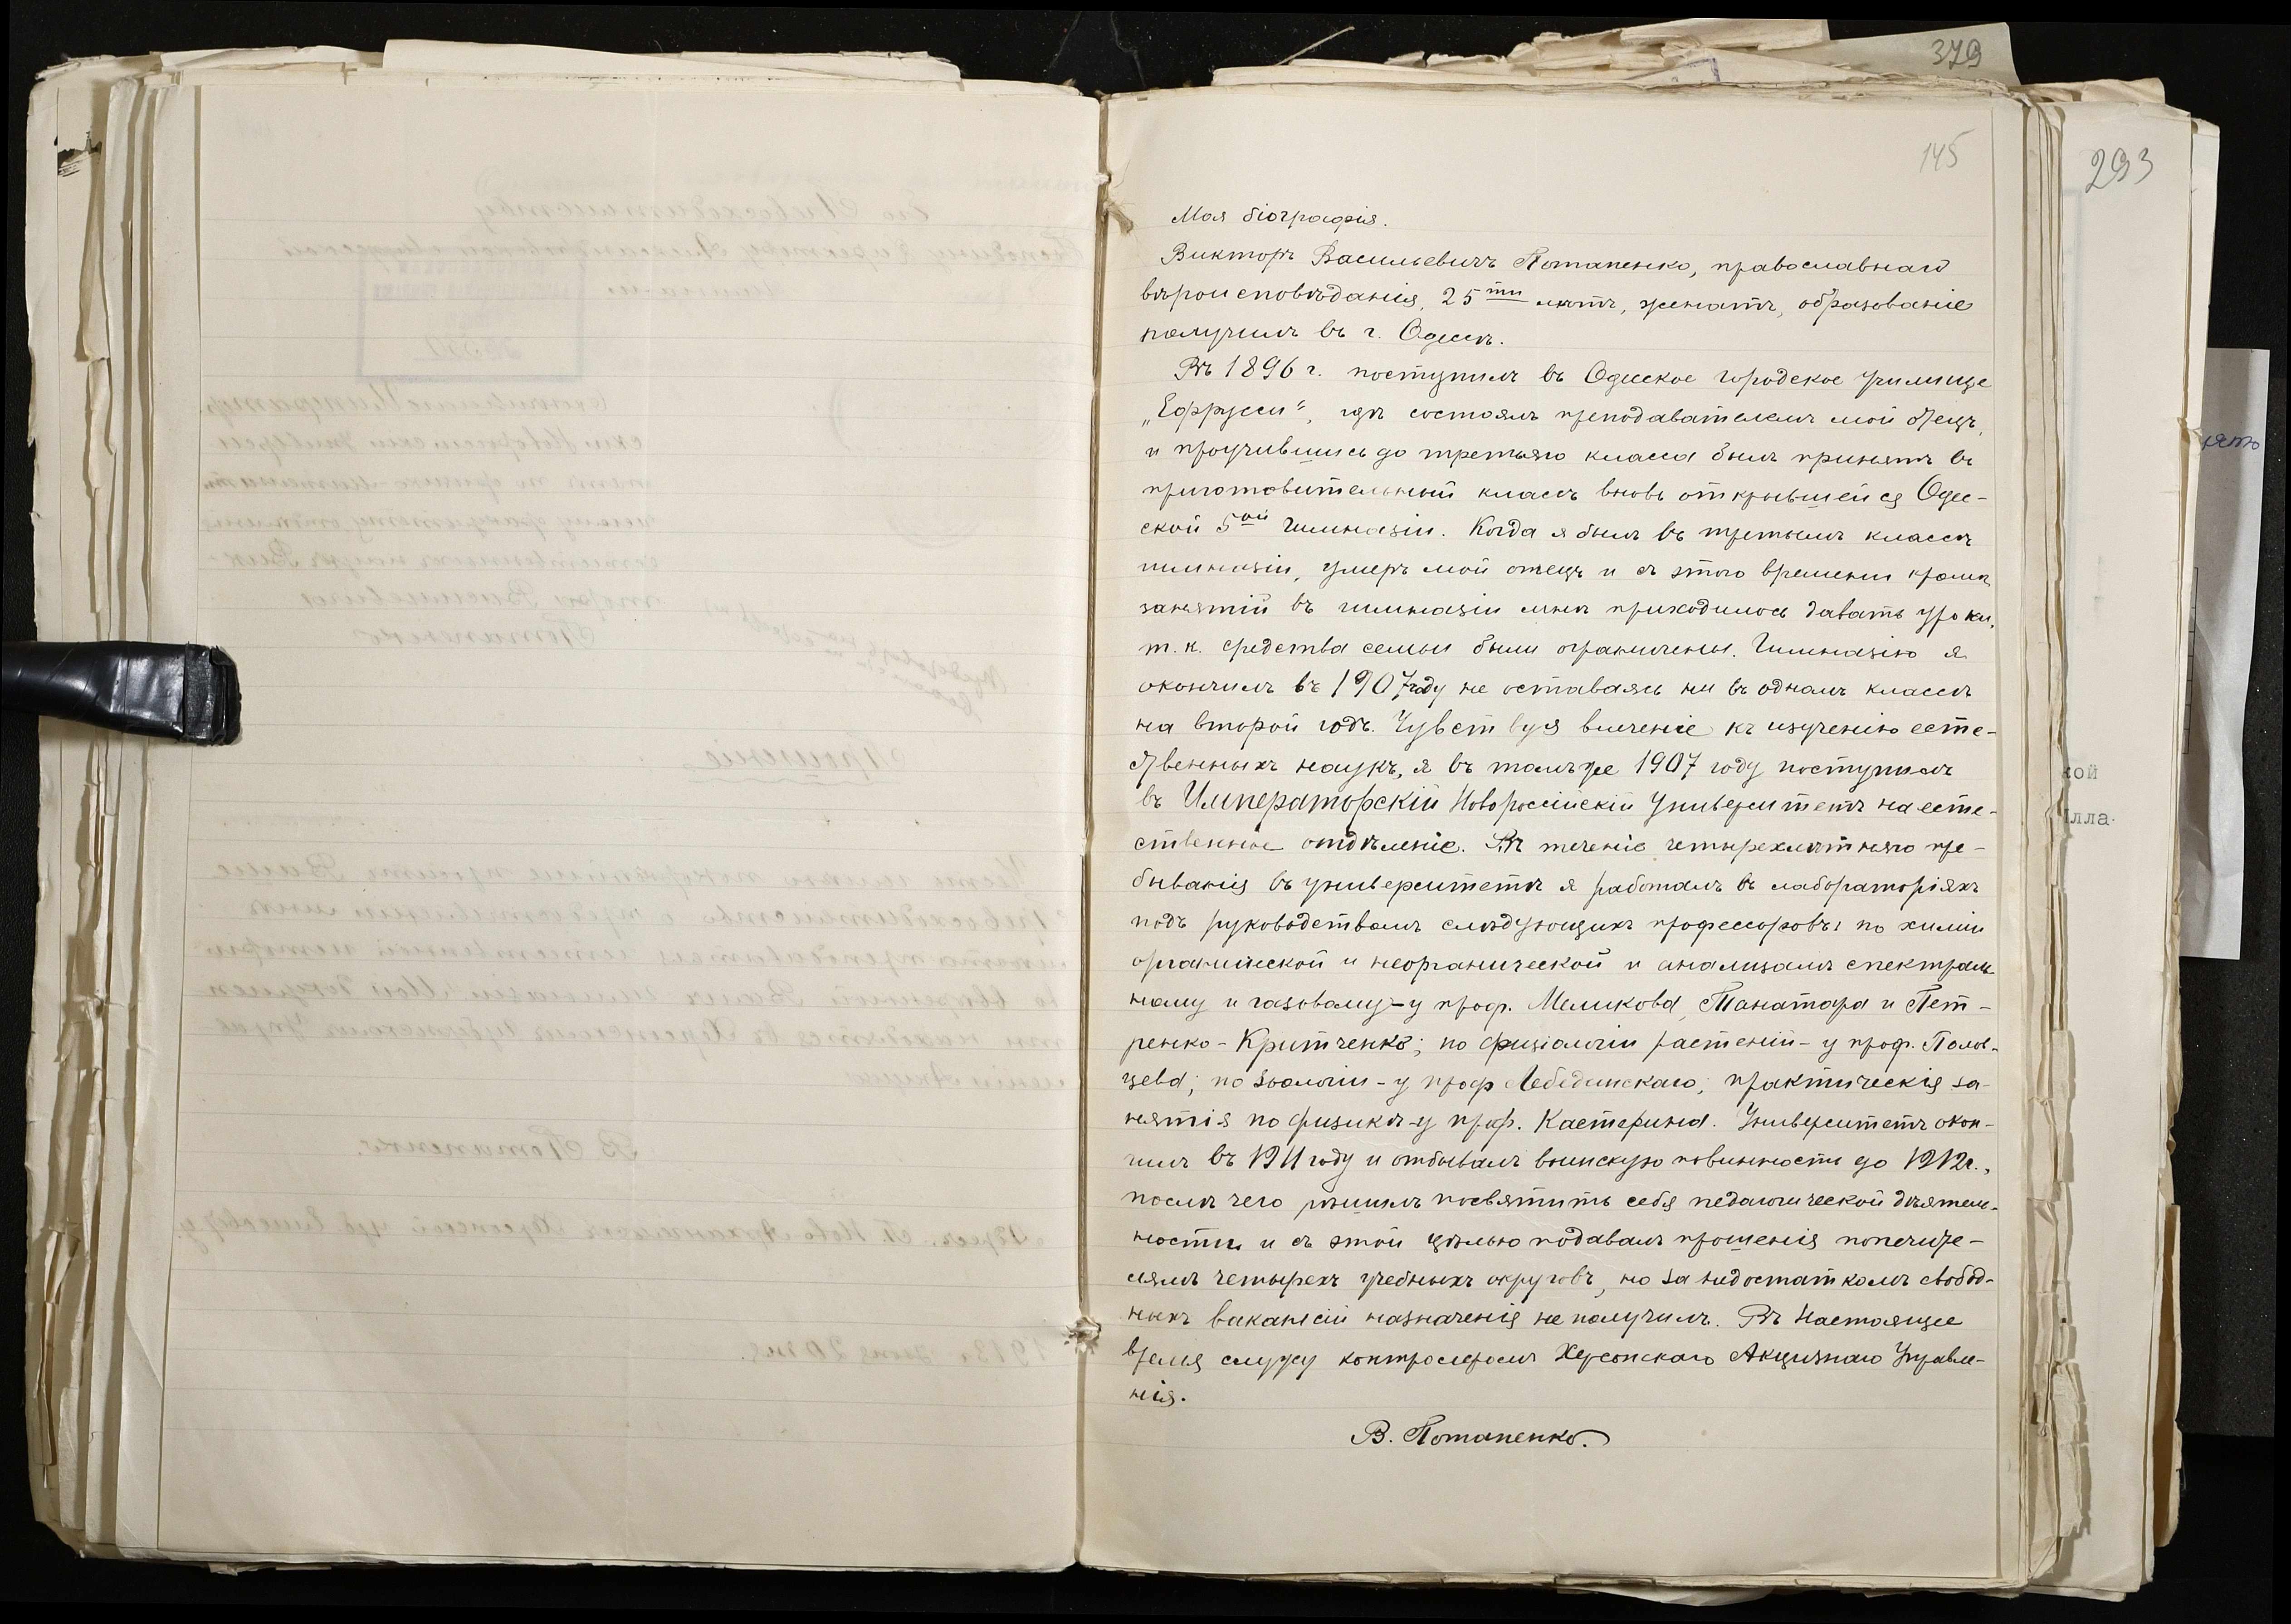 379
145
293
Моя біографія.
Викторъ Васильевичъ Потапенко, православнаго
вѣроисповѣданія, 25ти лѣтъ, женатъ, образованіе
получилъ въ г. Одессѣ.
Въ 1896 г. поступилъ въ Одесское городское училище
„Ефрусси“, гдѣ состоялъ преподавателемъ мой отецъ,
и проучившись до третьяго класса былъ принятъ въ
приготовительный классъ вновь открывшейся Одес-
ской 5ой Гимназіи. Когда я былъ въ третьемъ классѣ
гимназіи, умеръ мой отецъ и съ этого времени кромѣ
занятій въ гимназіи мнѣ приходилось давать уроки,
т. к. средства семьи были ограничены. Гимназію я
окончилъ въ 1907 году не оставаясь ни въ одномъ классѣ
на второй годъ. Чувствуя влеченіе къ изученію есте-
ственныхъ наукъ, я въ томъ же 1907 году поступилъ
въ Императорскій Новороссійскій Университетъ на есте-
ственное отдѣленіе. Въ теченіе четырехлѣтняго пре-
быванія въ университетѣ я работалъ въ лабораторіяхъ
подъ руководствомъ слѣдующихъ профессоровъ: по химіи
органической и неорганической и анализамъ спектраль-
ному и газовому – у проф. Меликова, Танатара и Пет-
ренко-Критченко; по физіологіи растеній – у проф. Полов-
цева; по зоологіи – у проф Лебединскаго; практическія за-
нятія по физикѣ – у проф. Кастерина. Университетъ окон-
чилъ въ 1911 году и отбывалъ воинскую повинность до 1912г.,
послѣ чего рѣшилъ посвятить себя педагогической дѣятель-
ности и съ этой цѣлью подавалъ прошенія попечите-
лямъ четырехъ учебныхъ округовъ, но за недостаткомъ свобод-
ныхъ вакансій назначенія не получилъ. Въ настоящее
время служу контролеромъ Херсонскаго Акцизнаго Управле-
нія.
В. Потапенко.
кой
лла-